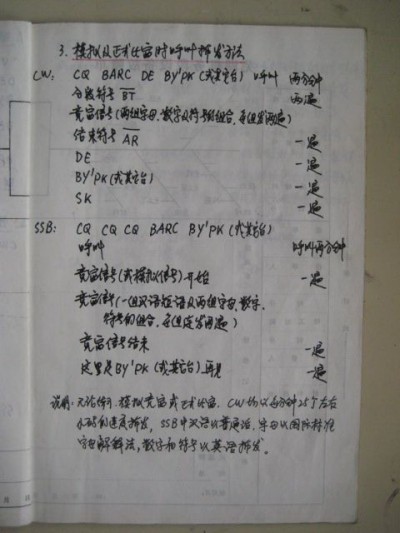 3. 模拟及正式比赛时呼叫拍发方法
CW: CQ BARC DE BY1PK (或其它台) 呼叫 两分钟
分隔符号 BT 两遍
竞赛信号(两组字母、数字及符号的组合,每组发两遍)
结束符号 AR 一遍
DE 一遍
BY1PK (或其它台) 一遍
SK 一遍
SSB: CQ CQ CQ BARC BY1PK (或其它台)
呼叫 呼叫两分钟
竞赛信号(或模拟信号)开始 一遍
竞赛信号(一组汉语短语及两组字母、数字、
符号的组合,每组连发两遍)
竞赛信号结束 一遍
这里是BY1PK (或其它台)再见 一遍
说明:无论作模拟竞赛或正式比赛,CW均以每分钟25个左右
的速度拍发,SSB中汉语以普通话,字母以国际标准
字母解释法,数字和符号以英语拍发。